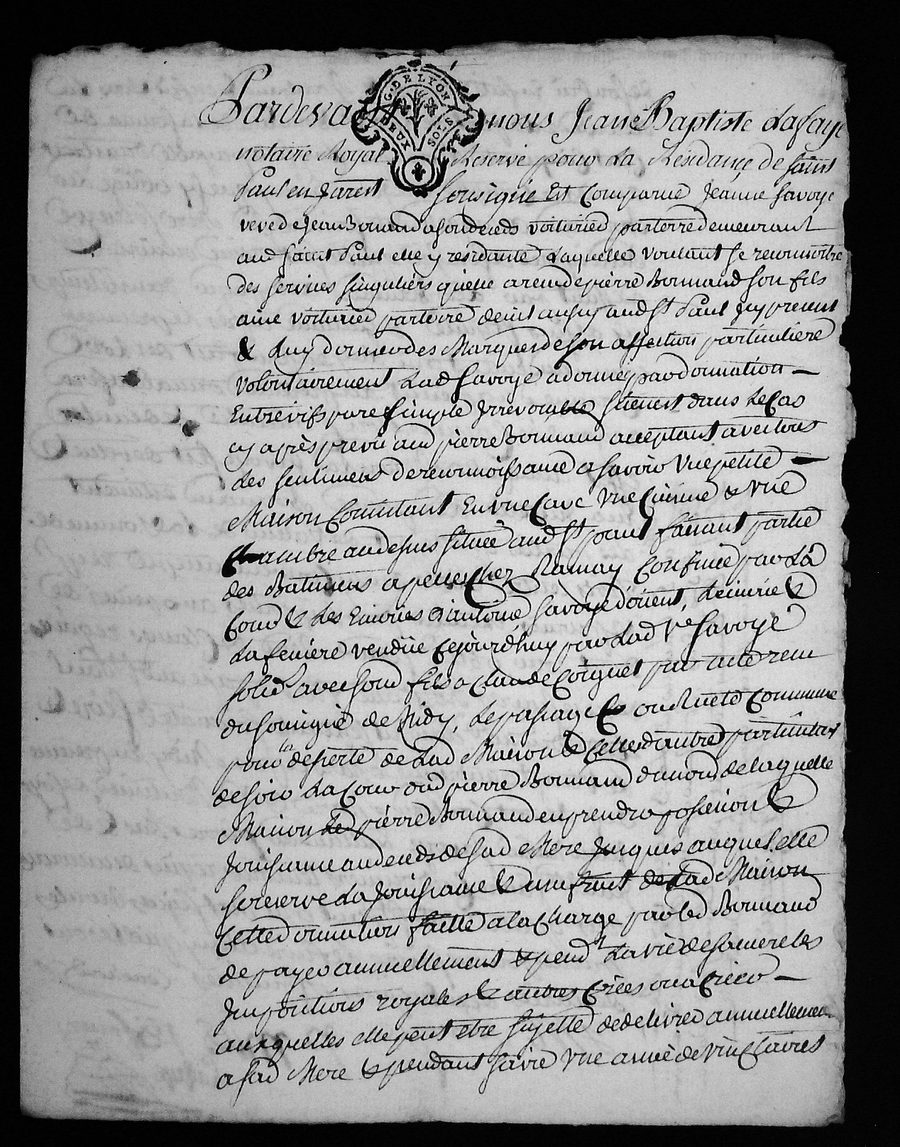 G. DE LYON
DEUX SOLS
Pardevant nous Jean Baptiste Lafaye
notaire Royal Reservé pour La Residance de Saint
Paul en Jarest Sousigné Est Comparue Jeanne Savoye
veve de Jean Bonnand a son deceds voiturier par terre demeurant
aud Saint Paul elle y residante Laquelle voulant se reconnoitre
des services singuliers quelle a receu de pierre Bonnand son fils
ainé voiturier par terre dem.t aussy aud St Paul Icy present
& Luy donner des Marques de son affection particuliere
volontairement Lad Savoye a donné par donnation
Entrevifs pure simple Irrevocable si ce n'est dans Le Cas
cy après prevû aud pierre Bonnand acceptant avec tous
des sentimens de reconnoissance a savoir Une petite
Maison Consistant En une Cave Une Cuisine & une
Chambre au dessus située aud St paul faisant partie
des Batimens appellés Chez Ramay Confinée par La
Cour & des Ecuries d'antoine Savoye d'orient, L'écurie &
La feniere vendüe Cejourdhuy par Lad ve Savoye
solid.t avec sond fils a Claude Coignet par acte receu
du Sousigné de Midy, Le passage & ou Ruete Commune
pour La deserte de Lad Maison & Celle d'autre particulier
de soir La Cour dud pierre Bonnand du nord de laquelle
Maison led pierre Bonnand en prendra possession &
Jouissance au deceds de sad Mere Jusques auquel elle
se reserve La Jouissance & usufruit de Lad Maison
Cette donnation faitte a la Charge par led Bonnand
de payer annuellement & pend.t La vie de sa mere les
Impositions royales & autres Crées ou a Creer
auxquelles elle peut etre sujette de delivrer annuellement
a sad Mere & pendant sa vie une année de vingt livres